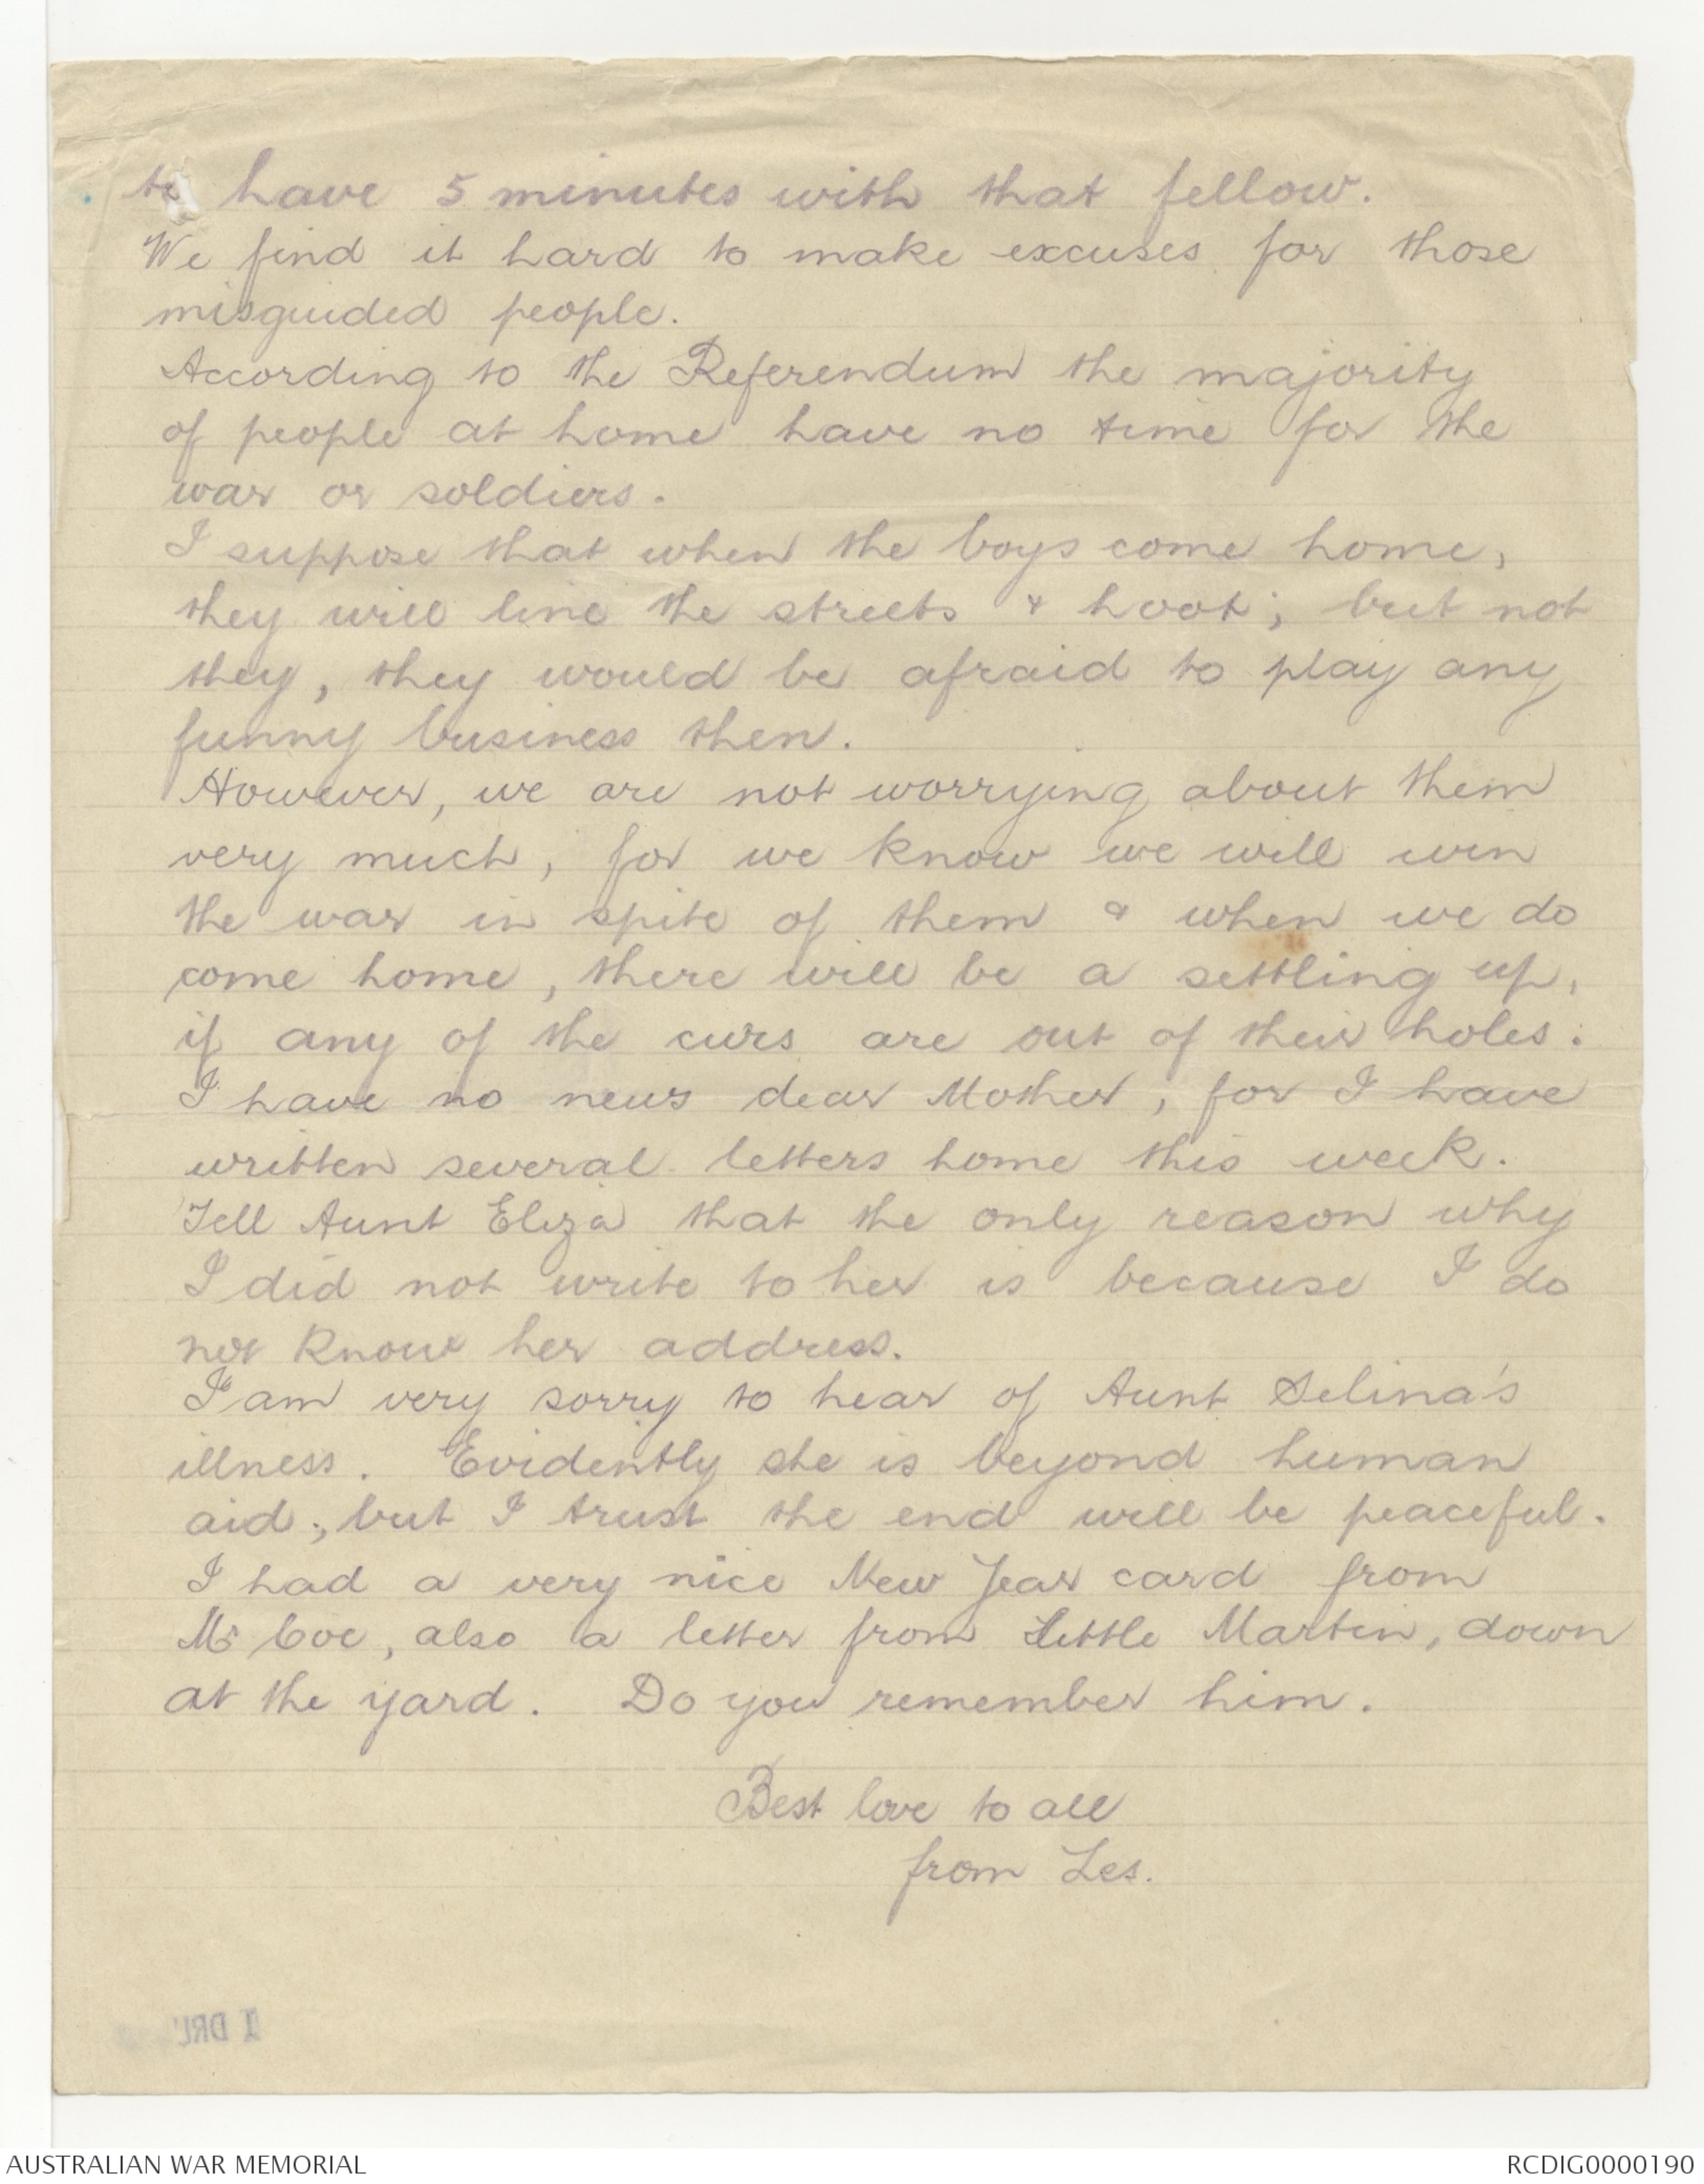 to have 5 minutes with that fellow.
We find it hard to make excuses for those
misguided people.
According to the Referendum the majority
of people at home have no time for the
war or soldiers.
I suppose that when the boys come home,
they will line the streets & hoot; but not
they, they would be afraid to play any
funny business then.
However, we are not worrying about them
very much, for we know we will win
the war in spite of them & when we do
come home, there will be a settling up,
if any of the curs are out of their holes.
I have no news dear Mother, for I have
written several letters home this week.
Tell Aunt Eliza that the only reason why
I did not write to her is because I do
not know her address.
I am very sorry to hear of Aunt Selina's
illness. Evidently she is beyond human
aid; but I trust the end will be peaceful.
I had a very nice New Year card from
Mr Coe, also a letter from Little Martin, down
at the yard. Do you remember him.
Best love to all
from Les.
1 DRL
AUSTRALIAN WAR MEMORIAL
RCDIG0000190